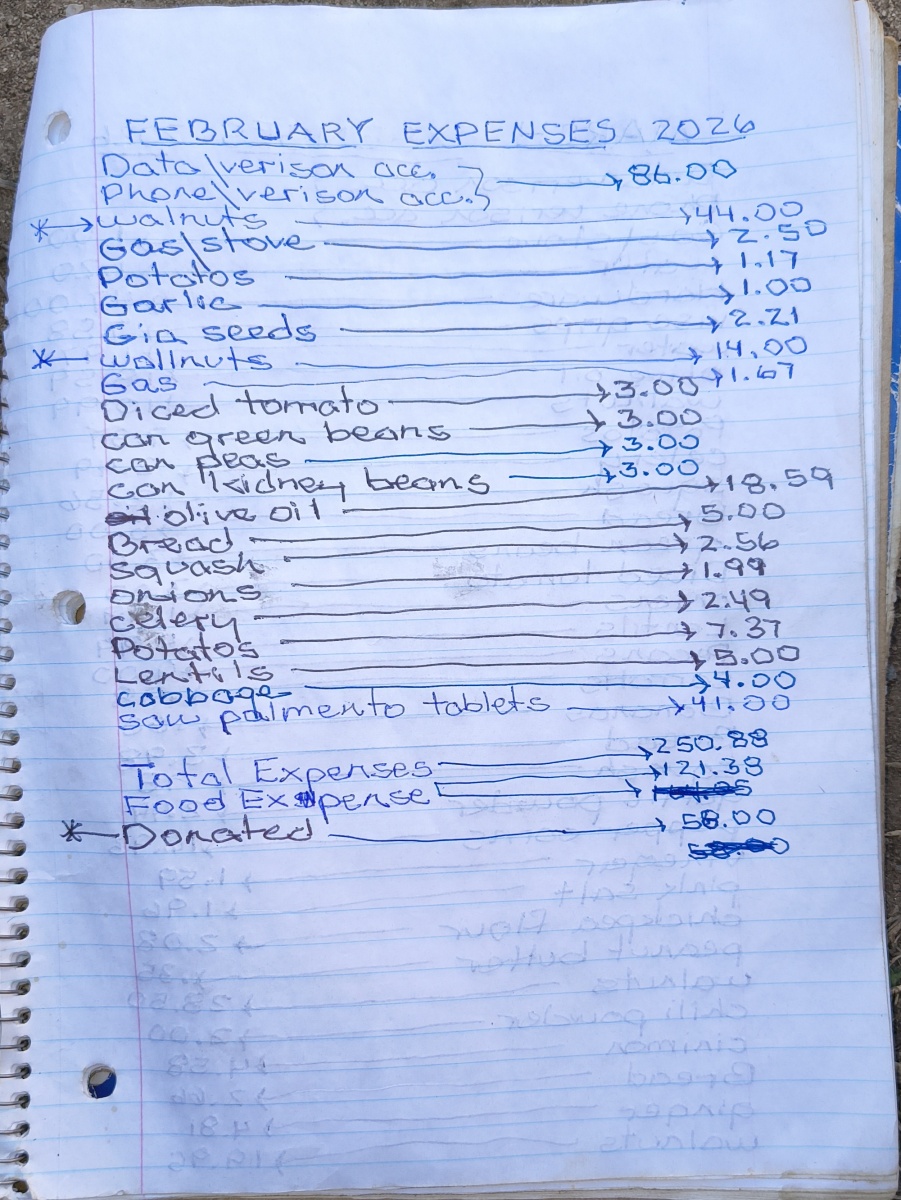 FEBRUARY EXPENSES 2026
Data\verison acc.
Phone\verison acc. → 86.00
* → walnuts → 44.00
Gas\stove → 2.50
Potatos → 1.17
Garlic → 1.00
Gia seeds → 2.21
* wallnuts → 14.00
Gas → 1.67
Diced tomato → 3.00
can green beans → 3.00
can peas → 3.00
can kidney beans → 3.00
olive oil → 18.59
Bread → 5.00
squash → 2.56
onions → 1.99
celery → 2.49
Potatos → 7.37
Lentils → 5.00
cabbage → 4.00
saw palmento tablets → 41.00
Total Expenses → 250.88
Food Expense → 121.38
* Donated → 58.00
pink salt 1.59
chickpea flour 1.96
peanut butter
walnuts
chili powder
cinimon
Bread
ginger
walnuts